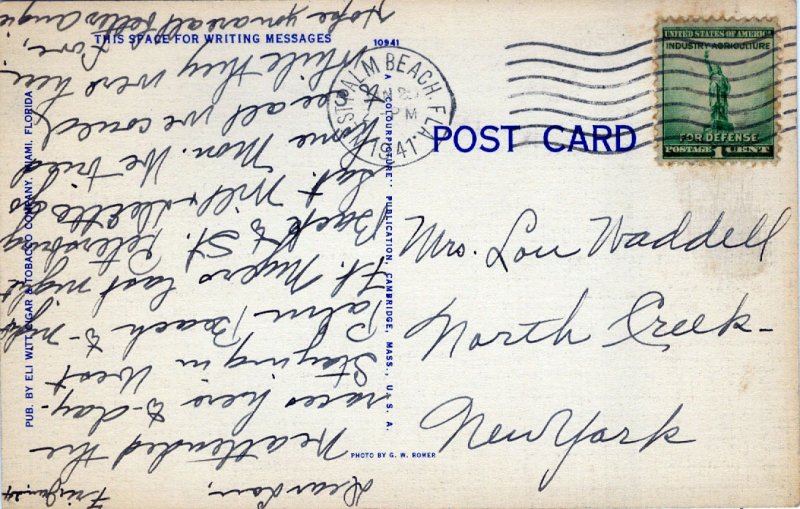 THIS SPACE FOR WRITING MESSAGES
10941
UNITED STATES OF AMERICA
INDUSTRY AGRICULTURE
FOR DEFENSE
POSTAGE 1 CENT
PALM BEACH, FLA.
PM
1941
POST CARD
Mrs. Lou Waddell
North Creek-
New York
Dear Lou,
attended the
races here to-day.
Staying in West
Palm Beach to-night
Ft. Myers last night
Back to St. Petersburg
Sat. Will
home Mon. We tried
to see all we could
While they were here
Love,
Hope you are all better
A "COLOURPICTURE" PUBLICATION, CAMBRIDGE, MASS., U. S. A.
PUB. BY ELI WITT CIGAR & TOBACCO COMPANY, MIAMI, FLORIDA
PHOTO BY G. W. ROMER